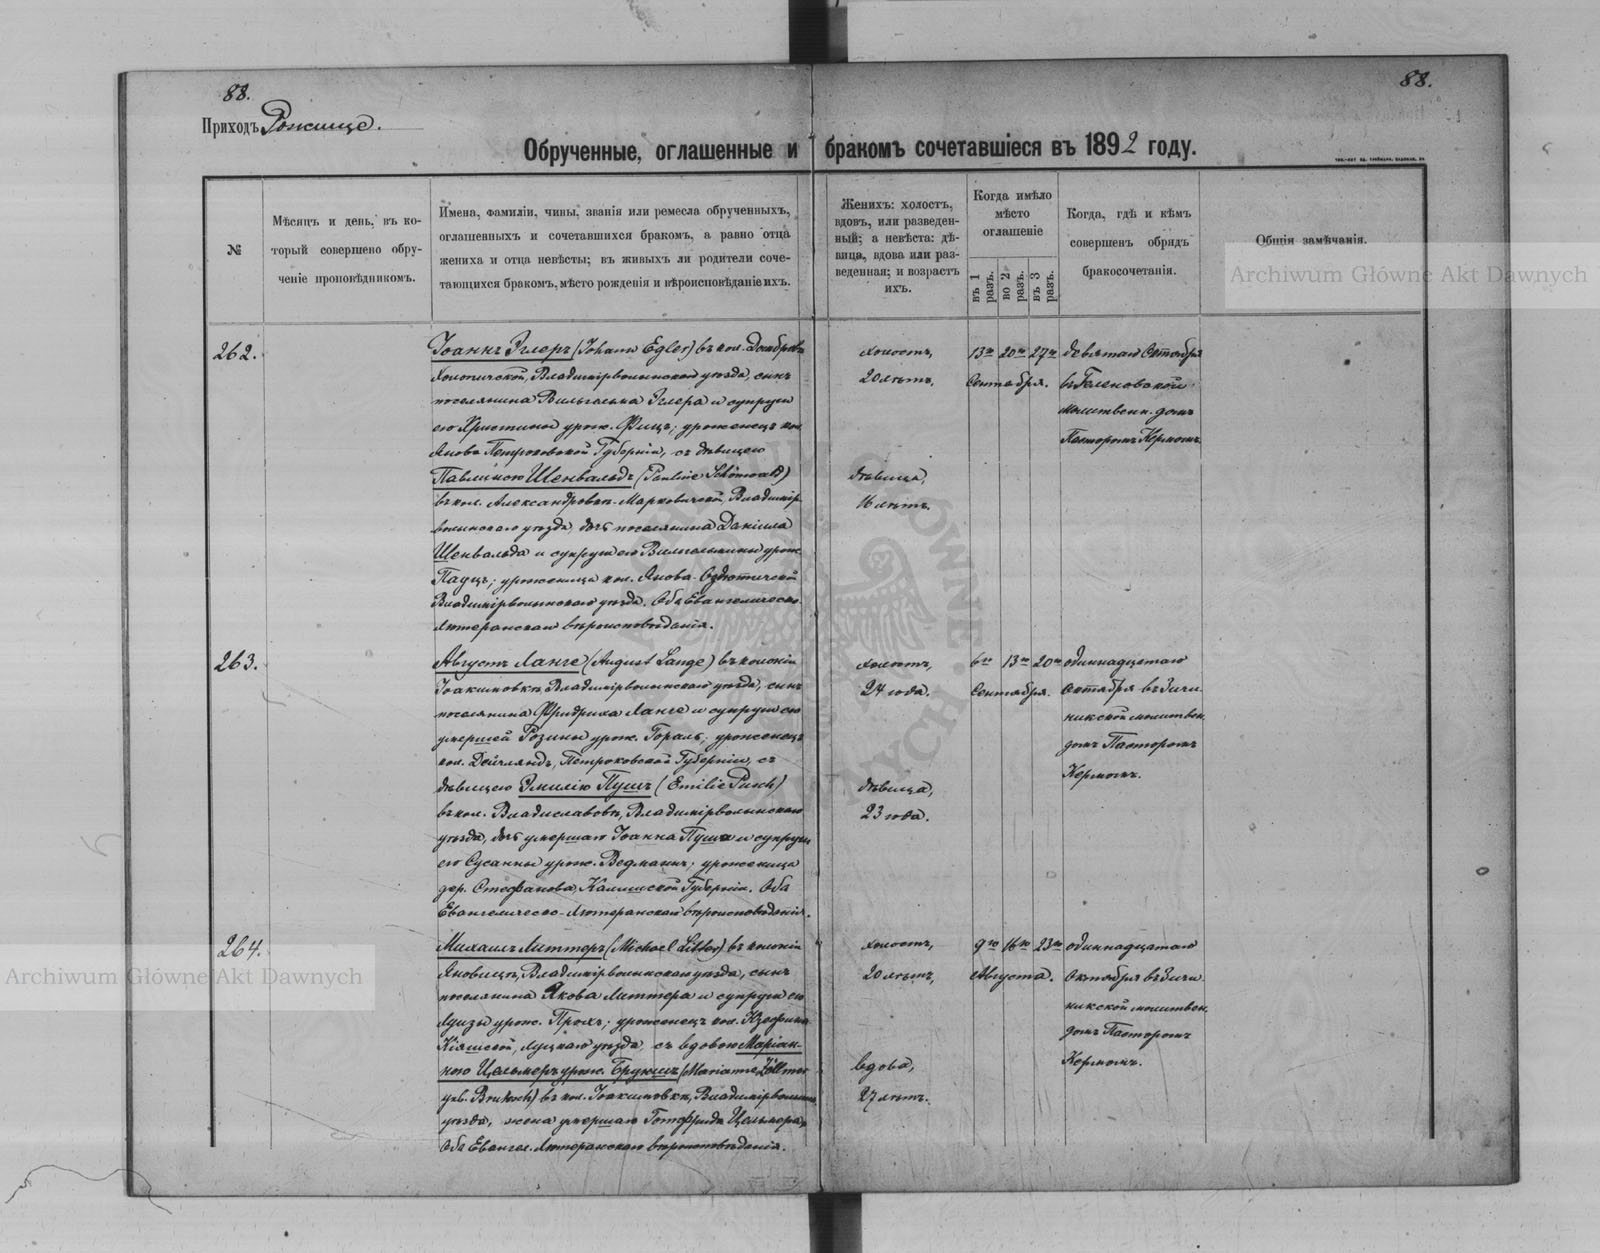 88.
88.
Приходъ Рожище.
Обрученные, оглашенные и бракомъ сочетавшіеся въ 1892 году.
№
Мѣсяцъ и день, въ ко-
торый совершено обру-
ченіе проповѣдникомъ.
Имена, фамиліи, чины, званія или ремесла обрученныхъ,
оглашенныхъ и сочетавшихся бракомъ, а равно отца
жениха и отца невѣсты; въ живыхъ ли родители соче-
тающихся бракомъ, мѣсто рожденія и вѣроисповѣданіе ихъ.
Женихъ: холостъ,
вдовъ, или разведен-
ный; а невѣста: дѣ-
вица, вдова или раз-
веденная; и возрастъ
ихъ.
Когда имѣло
мѣсто
оглашеніе
въ 1 разъ.
во 2 разъ.
въ 3 разъ.
Когда, гдѣ и кѣмъ
совершенъ обрядъ
бракосочетанія.
Общія замѣчанія.
Archiwum Główne Akt Dawnych
262.
Іоаннъ Эглеръ (Johann Egler) въ кол. Домброва
Холопичской, Владимірволынскаго уѣзда, сынъ
поселянина Вильгельма Эглера и супруги
его Христины урож. Фицъ; уроженецъ кол.
Янова Петроковской Губерніи, съ дѣвицею
Павлиною Шенвальдъ (Pauline Schönwald)
въ кол. Александровкѣ-Марковичской Владимір-
волынскаго уѣзда, дочь поселянина Даніила
Шенвальда и супруги его Вильгельмины урож.
Пауцъ; уроженица кол. Янова-Оздютичской
Владимірволынскаго уѣзда. Оба Евангелическо-
Лютеранскаго вѣроисповѣданія.
холостъ,
20 лѣтъ.
дѣвица,
16 лѣтъ.
13го 20го 27го
Сентября.
девятаго Октября
въ Геленовской
молитвенн. домѣ
Пасторомъ Кермомъ.
263.
Августъ Ланге (August Lange) въ колоніи
Іоакимовкѣ, Владимірволынскаго уѣзда, сынъ
поселянина Фридриха Ланге и супруги его
умершей Розины урож. Гораль; уроженецъ
кол. Дейчляндъ, Петроковской Губерніи, съ
дѣвицею Эмилію Пушъ (Emilie Pusch)
въ кол. Владиславовкѣ, Владимірволынскаго
уѣзда, дочь умершаго Іоанна Пуша и супруги
его Сусанны урож. Ведманъ; уроженица
дер. Стефанова, Калишской Губерніи. Оба
Евангелическо-Лютеранскаго вѣроисповѣданія.
холостъ,
24 года.
дѣвица,
23 года.
6го 13го 20го
Сентября.
одиннадцатаго
Октября въ Зичи-
никской молитвен.
домѣ Пасторомъ
Кермомъ.
264.
Михаилъ Литтеръ (Michael Litter) въ колоніи
Яновицѣ, Владимірволынскаго уѣзда, сынъ
поселянина Якова Литтера и супруги его
Луизы урож. Прохъ; уроженецъ кол. Юзефина-
Кіяшской, Луцкаго уѣзда, съ вдовою Маріан-
ною Цельмеръ урож. Брукшъ (Marianne Zöllmer
geb. Bruksch) въ кол. Іоакимовкѣ, Владимірволынск.
уѣзда, жена умершаго Готфрида Цельмера,
Оба Евангел. Лютеранскаго вѣроисповѣданія.
холостъ,
20 лѣтъ.
вдова,
27 лѣтъ.
9го 16го 23го
Августа.
одиннадцатаго
Октября въ Зичи-
никской молитвен.
домѣ Пасторомъ
Кермомъ.
Archiwum Główne Akt Dawnych